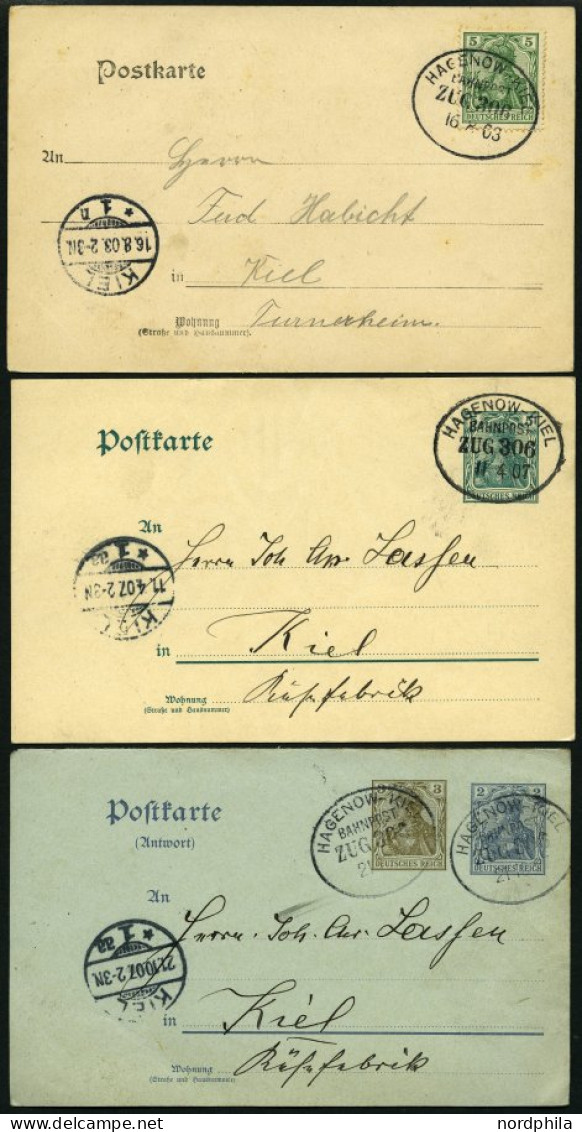 Postkarte
5 5
DEUTSCHES REICH
HAGENOW-KIEL
BAHNPOST
ZUG 306
16. 8 03
An
Herrn
Ferd Habicht
* 1 n
16.8.03.2-3N.
KIEL
in Kiel
Wohnung
(Straße und Hausnummer).
Turnerheim.
Postkarte
HAGENOW-KIEL
BAHNPOST
ZUG 306
11 4 07
An
Herrn Joh. Chr. Lassen
* 1 aa
11.4.07.2-3N
KIEL
in Kiel
Wohnung
(Straße und Hausnummer)
Käsefabrik
Postkarte
(Antwort)
3 3
DEUTSCHES REICH
2 2
DEUTSCHES REICH
HAGENOW-KIEL
BAHNPOST
ZUG
21
HAGENOW-KIEL
ZUG
21
An
Herrn Joh. Chr. Lassen
* 1 aa
21.10.07.2-3N
KIEL
in Kiel
Wohnung
(Straße und Hausnummer)
Käsefabrik
www.nordphila.de